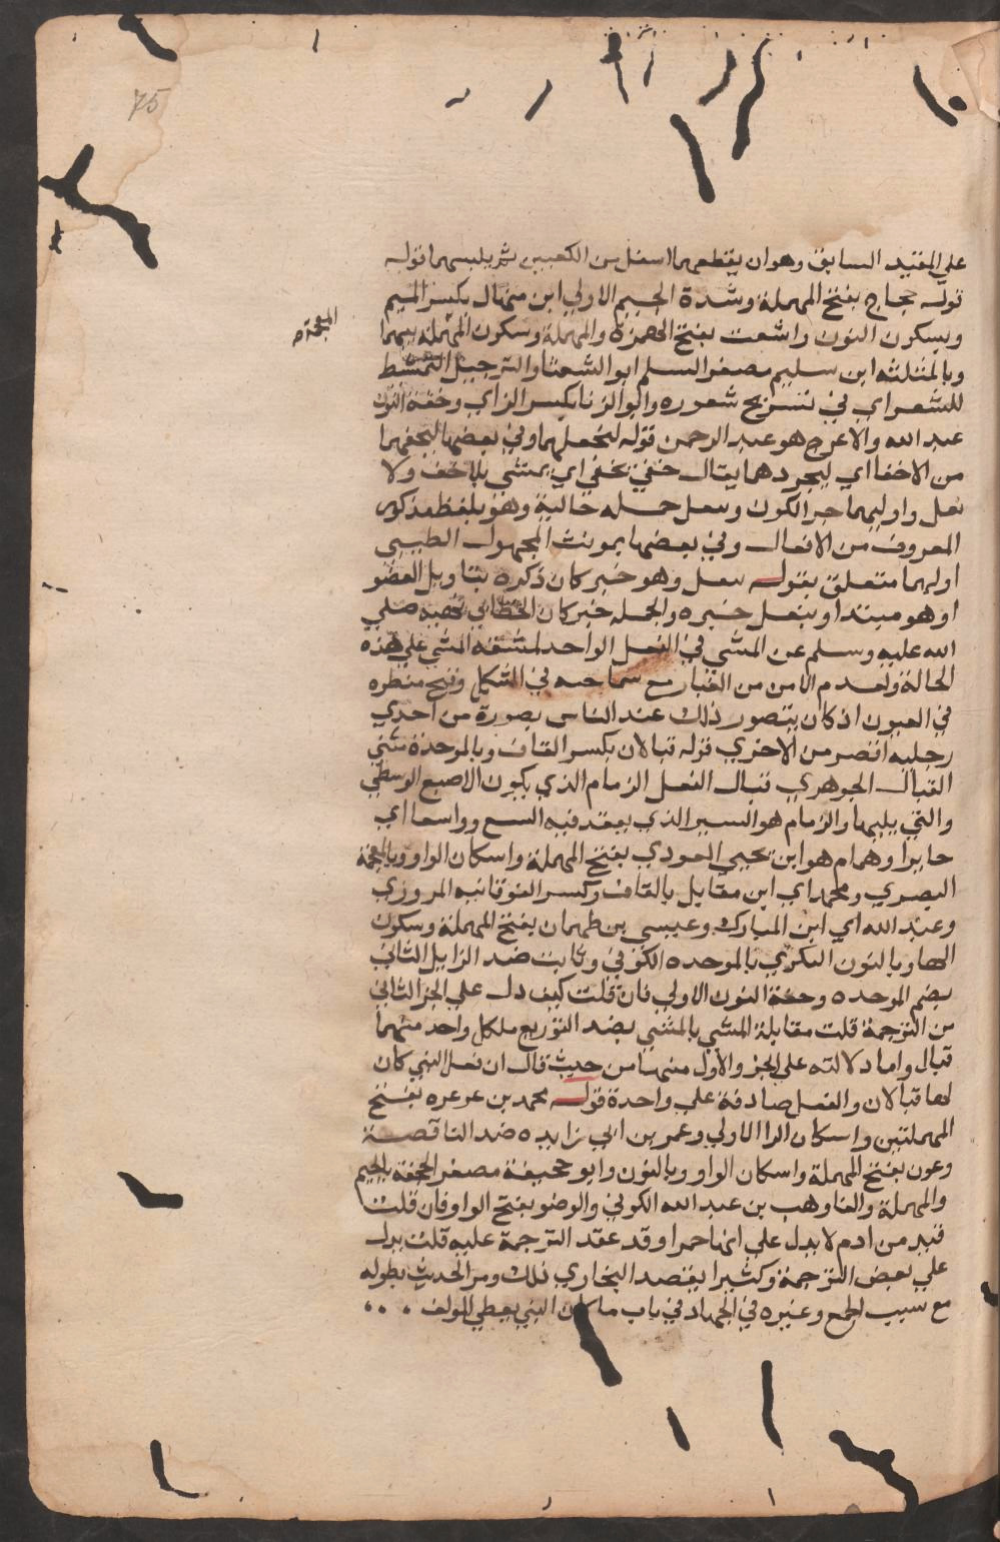 75
علي المقيد السابق وهو ان يقطعهما اسفل من الكعبين ثم يلبسهما قوله
قوله حجاج بفتح المهملة وشدة الجيم الاولي ابن منهال بكسر الميم
وبسكون النون واشعث بفتح الهمزة والمهملة وسكون المهملة بينهما
المعجمة
وبالمثلثه ابن سليم مصغر السلم ابو الشعثا والترجيل التمشط
للشعر اي في تسريح شعوره وابو الزنا بكسر الزاي وخفة النون
عبد الله والاعرج هو عبد الرحمن قوله لينعلهما وفي بعضها ليحفهما
من الاحفا اي ليجردهما يقال حفي يحفي اي يمشي بلا خف ولا
نعل واوليهما خبر الكون وينعل جمله حالية وهو بلفظ مذكور
المعروف من الافعال وفي بعضها بمونث المجهول الطيبي
اولهما متعلق بقوله ينعل وهو خبر كان ذكره بتاويل العضو
او هو مبتدا وينعل خبره والجمله خبر كان الخطابي نهيه صلي
الله عليه وسلم عن المشي في النعل الواحد لمشقة المشي علي هذه
الحالة ولعدم الامن من العثار مع سماجته في الشكل وقبح منظره
في العيون اذ كان يتصور ذلك عند الناس بصورة من احدي
رجليه اقصر من الاخري قوله قبالان بكسر القاف وبالموحدة مثني
القبال الجوهري قبال النعل الزمام الذي يكون الاصبع الوسطي
والتي يليها والزمام هو السير الذي يعقد فيه الشسع وواسعا اي
جايزا وهمام هو ابن يحيي العوذي بفتح المهملة واسكان الواو وبالمعجمة
البصري ومحمد اي ابن مقاتل بالقاف وكسر الفوقانيه المروزي
وعبد الله اي ابن المبارك وعيسي بن طهمان بفتح المهملة وسكون
الها وبالنون البكري بالموحده الكوفي وثابت ضد الزايل البناني
بضم الموحده وخفة النون الاولي فان قلت كيف دل علي الجز الثاني
من الترجمة قلت مقابلة المثني بالمثني يفيد التوزيع فلكل واحد منهما
قبال واما دلالته علي الجز والاول منها من حديث قال ان نعل النبي كان
لها قبالان والنعل صادقة علي واحدة قوله محمد بن عرعره بفتح
المهملتين واسكان الرا الاولي وعمر بن ابي زايده ضد الناقصة
وعون بفتح المهملة واسكان الواو وبالنون وابو جحيفة مصغر الجحفة بالجيم
والمهملة والفا وهب بن عبد الله الكوفي والوضو بفتح الواو فان قلت
قبه من ادم لا يدل علي انها حمرا وقد عقد الترجمة عليه قلت يدل
علي بعض الترجمة وكثيرا يقصد البخاري ذلك ومر الحديث بطوله
مع سبب الجمع وغيره في الجهاد في باب ما كان النبي يعطي المولف